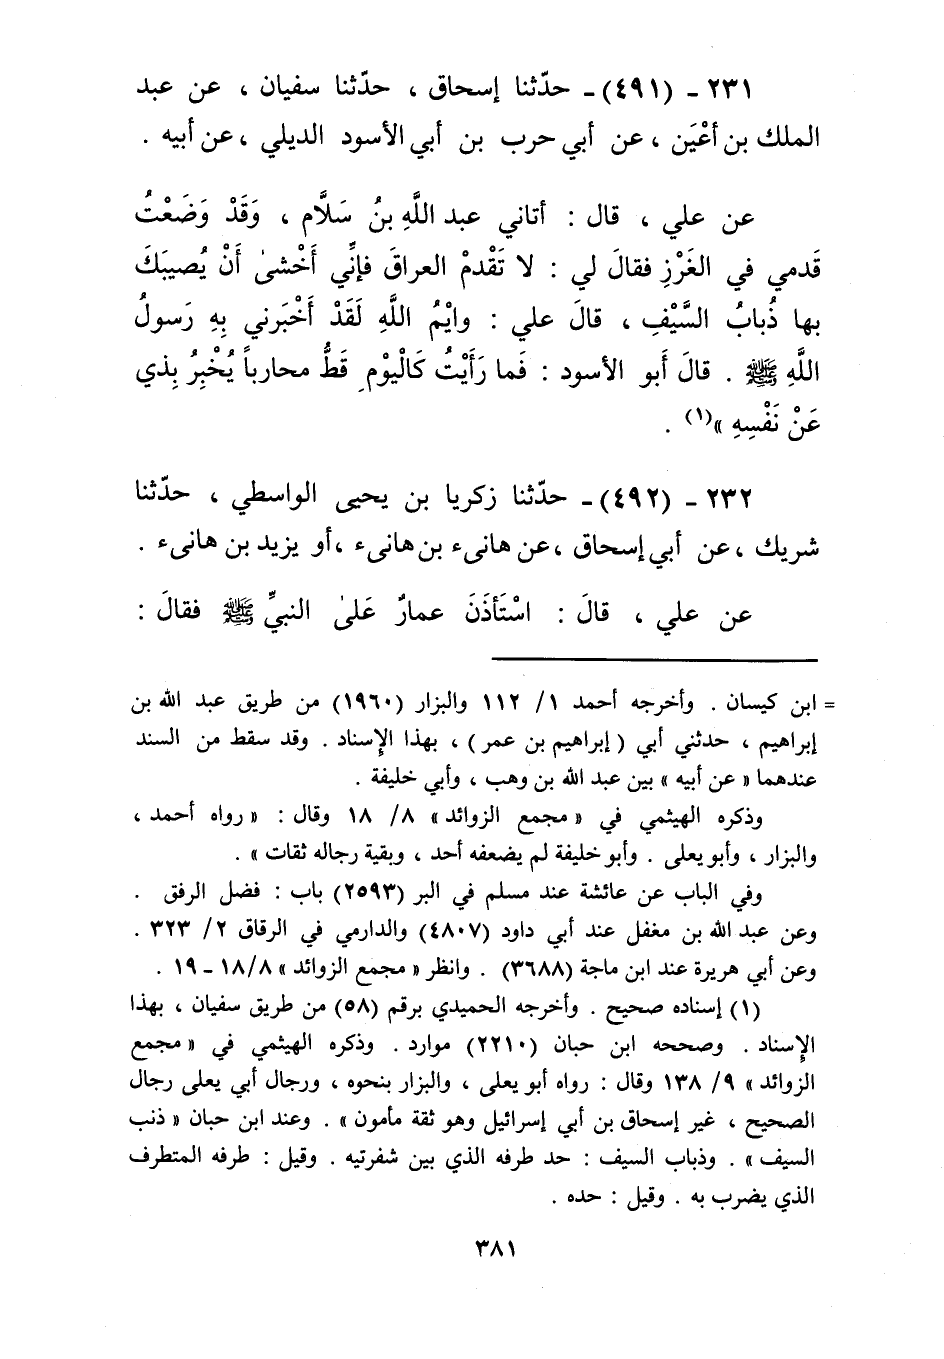 ٢٣١ - (٤٩١) - حدّثنا إسحاق ، حدّثنا سفيان ، عن عبد
الملك بن أعْيَن ، عن أبي حرب بن أبي الأسود الديلي ، عن أبيه .
عن علي ، قال : أتاني عبد اللَّهِ بنُ سَلَّام ، وَقَدْ وَضَعْتُ
قَدمي في الغَرْزِ فقالَ لي : لا تَقْدمْ العراقَ فإنِّي أَخْشىٰ أَنْ يُصيبَكَ
بها ذُبابُ السَّيْفِ ، قالَ علي : وايْمُ اللَّهِ لَقَدْ أَخْبَرني بِهِ رَسولُ
اللَّهِ ﷺ . قالَ أَبو الأسود : فَما رَأَيْتُ كَالْيوْمِ قَطُّ محارباً يُخْبِرُ بِذي
عَنْ نَفْسِهِ »(١) .
٢٣٢ - (٤٩٢) - حدّثنا زكريا بن يحيى الواسطي ، حدّثنا
شريك ، عن أبي إسحاق ، عن هانىء بن هانىء ، أو يزيد بن هانىء .
عن علي ، قالَ : اسْتَأذَنَ عمارٌ عَلىٰ النبيِّ ﷺ فقالَ :
= ابن كيسان . وأخرجه أحمد ١/ ١١٢ والبزار (١٩٦٠) من طريق عبد الله بن
إبراهيم ، حدثني أبي ( إبراهيم بن عمر ) ، بهذا الإسناد . وقد سقط من السند
عندهما « عن أبيه » بين عبد الله بن وهب ، وأبي خليفة .
وذكره الهيثمي في « مجمع الزوائد » ٨/ ١٨ وقال : « رواه أحمد ،
والبزار ، وأبو يعلى . وأبو خليفة لم يضعفه أحد ، وبقية رجاله ثقات » .
وفي الباب عن عائشة عند مسلم في البر (٢٥٩٣) باب : فضل الرفق .
وعن عبد الله بن مغفل عند أبي داود (٤٨٠٧) والدارمي في الرقاق ٢/ ٣٢٣ .
وعن أبي هريرة عند ابن ماجة (٣٦٨٨) . وانظر « مجمع الزوائد » ٨/ ١٨ - ١٩ .
(١) إسناده صحيح . وأخرجه الحميدي برقم (٥٨) من طريق سفيان ، بهذا
الإسناد . وصححه ابن حبان (٢٢١٠) موارد . وذكره الهيثمي في « مجمع
الزوائد » ٩/ ١٣٨ وقال : رواه أبو يعلى ، والبزار بنحوه ، ورجال أبي يعلى رجال
الصحيح ، غير إسحاق بن أبي إسرائيل وهو ثقة مأمون » . وعند ابن حبان « ذنب
السيف » . وذباب السيف : حد طرفه الذي بين شفرتيه . وقيل : طرفه المتطرف
الذي يضرب به . وقيل : حده .
٣٨١